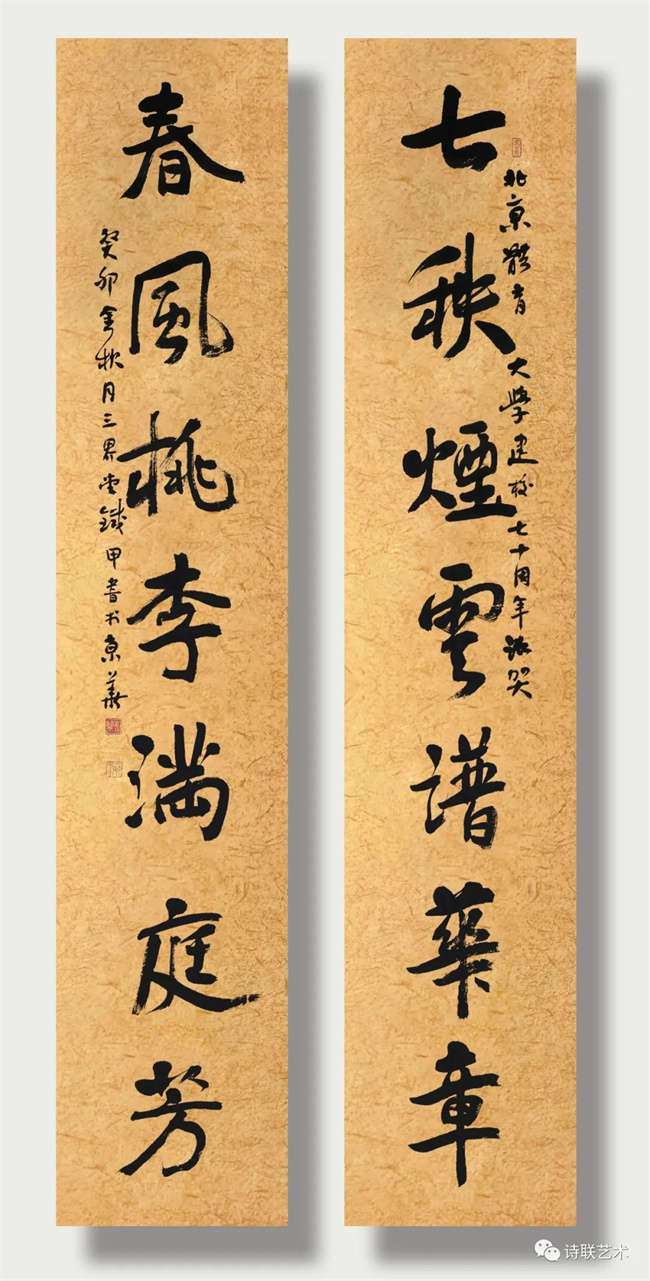 七秩煙雲譜華章
北京體育大學建校七十周年誌賀
春風桃李滿庭芳
癸卯金秋月三界堂鐵甲書於京華
诗联艺术